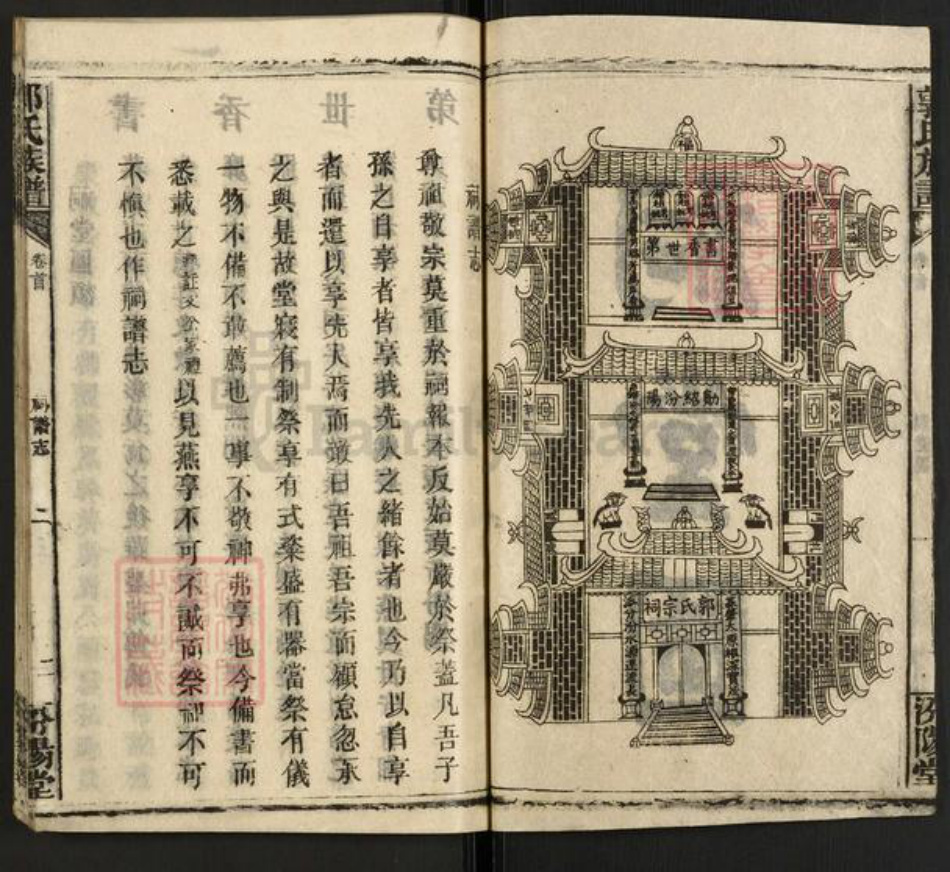 郭氏族譜
汾陽堂
福
書香世第
勳紹汾陽
福
郭氏宗祠
祠譜志
尊祖敬宗莫重於祠報本反始莫嚴於祭蓋凡吾子
孫之自享者皆享我先人之緒餘者也今乃以自享
者而還以享先人焉而僉曰吾祖吾宗而顧怠忽承
之與是故堂寢有制祭享有式粢盛有器當祭有儀
一物不備不敢薦也一事不敬神弗享也今備書而
悉載之以見燕享不可不誠而祭祀不可
不慎也作祠譜志
郭氏族譜
卷首
祠譜志
二
汾陽堂